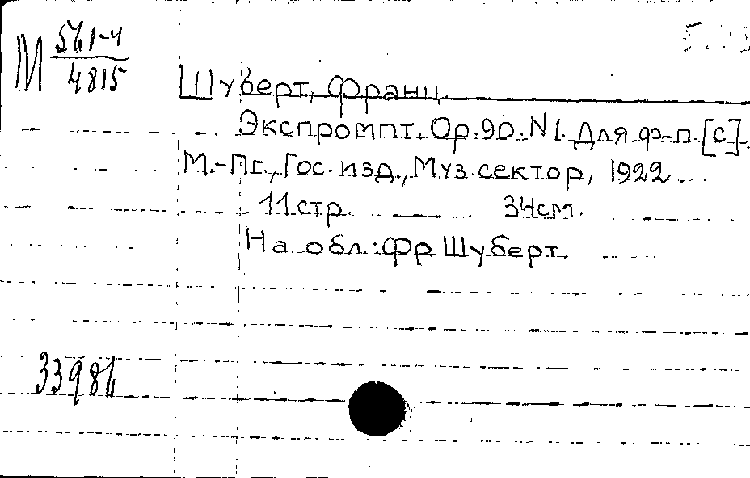 М 561-4
4815
Шуберт, Франц.
Экспромпт. Ор. 90. N1. Для ф-п. [c].
М.-Пг., Гос. изд., Муз. сектор, 1922
11 стр. 34 см.
На обл.: Фр Шуберт.